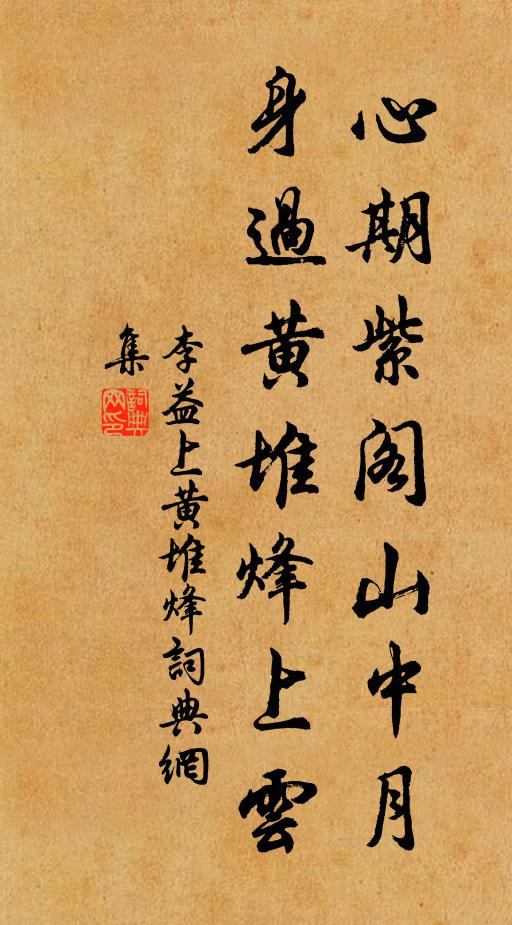 心期紫阁山中月
身過黄堆烽上雲
李益上黄堆烽詞典網
集
詞典網印